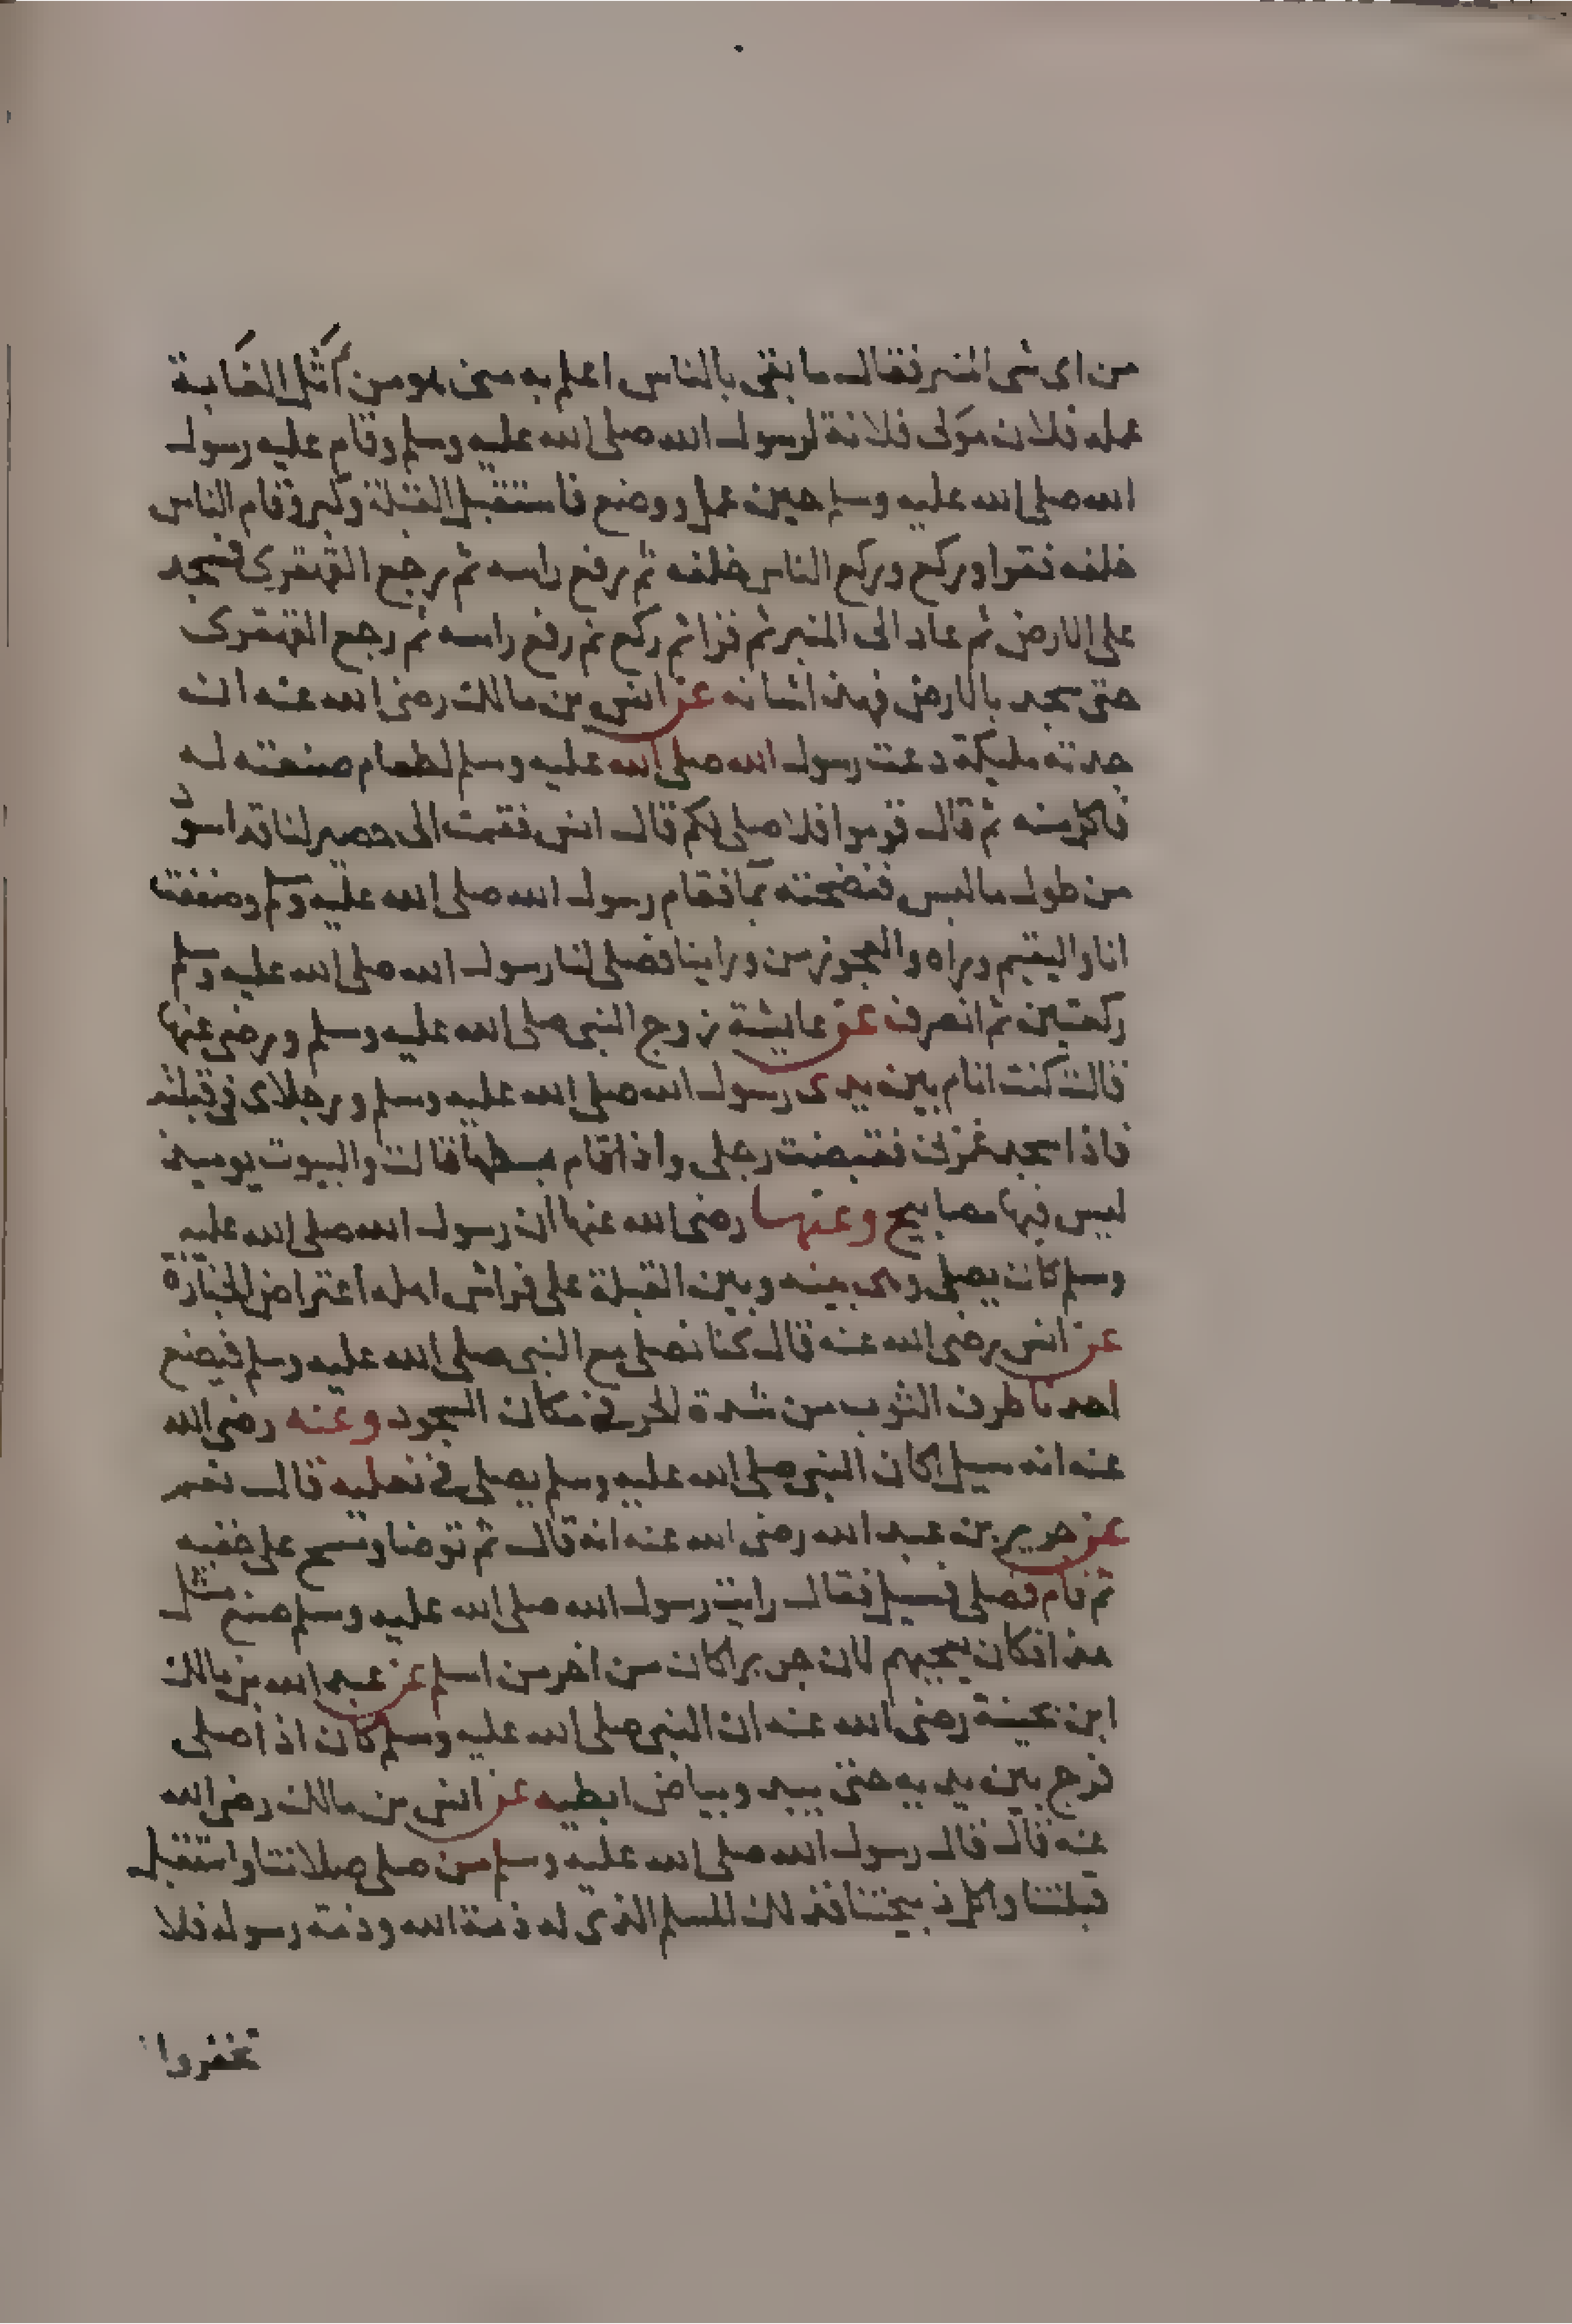 من اى شى المنبر فقال ما بقى بالناس اعلم به منى هو من أثل الغابة
عمله فلان مولى فلانة لرسول الله صلى الله عليه وسلم وقام عليه رسول
الله صلى الله عليه وسلم حين عمل ووضع فاستقبل القبلة وكبر وقام الناس
خلفه فقرا وركع وركع الناس خلفه ثم رفع راسه ثم رجع القهقرى فسجد
على الارض ثم عاد الى المنبر ثم قرا ثم ركع ثم رفع راسه ثم رجع القهقرى
حتى سجد بالارض فهذا شانه عن انس بن مالك رضى الله عنه ان
جدته مليكة دعت رسول الله صلى الله عليه وسلم لطعام صنعته له
فاكل منه ثم قال قوموا فلاصلى لكم قال انس فقمت الى حصير لنا قد اسود
من طول ما لبس فنضحته بما فقام رسول الله صلى الله عليه وسلم وصففت
انا واليتيم وراه والعجوز من وراينا فصلى لنا رسول الله صلى الله عليه وسلم
ركعتين ثم انصرف عن عايشة زوج النبى صلى الله عليه وسلم ورضى عنها
قالت كنت انام بين يدى رسول الله صلى الله عليه وسلم ورجلاى فى قبلته
فاذا سجد غمزنى فقبضت رجلى واذا قام بسطتها قالت والبيوت يوميذ
ليس فيها مصابيح وعنها رضى الله عنها ان رسول الله صلى الله عليه
وسلم كان يصلى وهى بينه وبين القبلة على فراش اهله اعتراض الجنازة
عن انس رضى الله عنه قال كنا نصلى مع النبى صلى الله عليه وسلم فيضع
احدنا طرف الثوب من شدة الحر فى مكان السجود وعنه رضى الله
عنه انه سيل اكان النبى صلى الله عليه وسلم يصلى فى نعليه قال نعم
عن جرير بن عبد الله رضى الله عنه انه قال ثم توضا ومسح على خفيه
ثم قام فصلى فسيل فقال رايت رسول الله صلى الله عليه وسلم صنع مثل
هذا فكان يعجبهم لان جريرا كان من اخر من اسلم عن عبد الله بن مالك
ابن بحينة رضى الله عنه ان النبى صلى الله عليه وسلم كان اذا صلى
فرج بين يديه حتى يبدو بياض ابطيه عن انس بن مالك رضى الله
عنه قال قال رسول الله صلى الله عليه وسلم من صلى صلاتنا واستقبل
قبلتنا واكل ذبيحتنا فذلك المسلم الذى له ذمة الله وذمة رسوله فلا
تخفروا